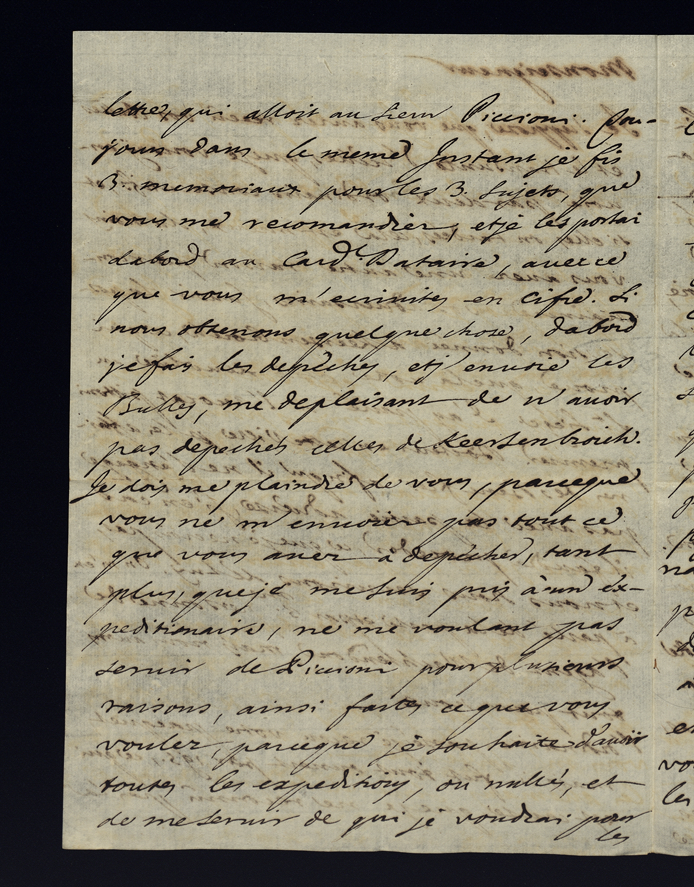 lettre, qui alloit au Sieur Piccioni. Tou-
jours dans le meme Instant je fis
3. memoriaux pour les 3. Sujets, que
vous me recomandiez, et je les portai
dabord au Card.l Dataire, avec ce
que vous m'ecrivites en cifre. Si
nous obtenons quelque chose, dabord
je fais les depeches, et j'envoie les
Bulles, me deplaisant de n'avoir
pas depeches celles de Keersenbroich.
Je dois me plaindre de vous, parceque
vous ne m'envoiez pas tout ce
que vous avez à depecher, tant
plus, que je me suis pris à un ex-
peditionaire, ne me voulant pas
servir de Piccioni pour plusieurs
raisons, ainsi faites ce que vous
voulez, parceque je souhaite d'avoir
toutes les expeditions, ou nulles, et
de me servir de qui je voudrai pour
les